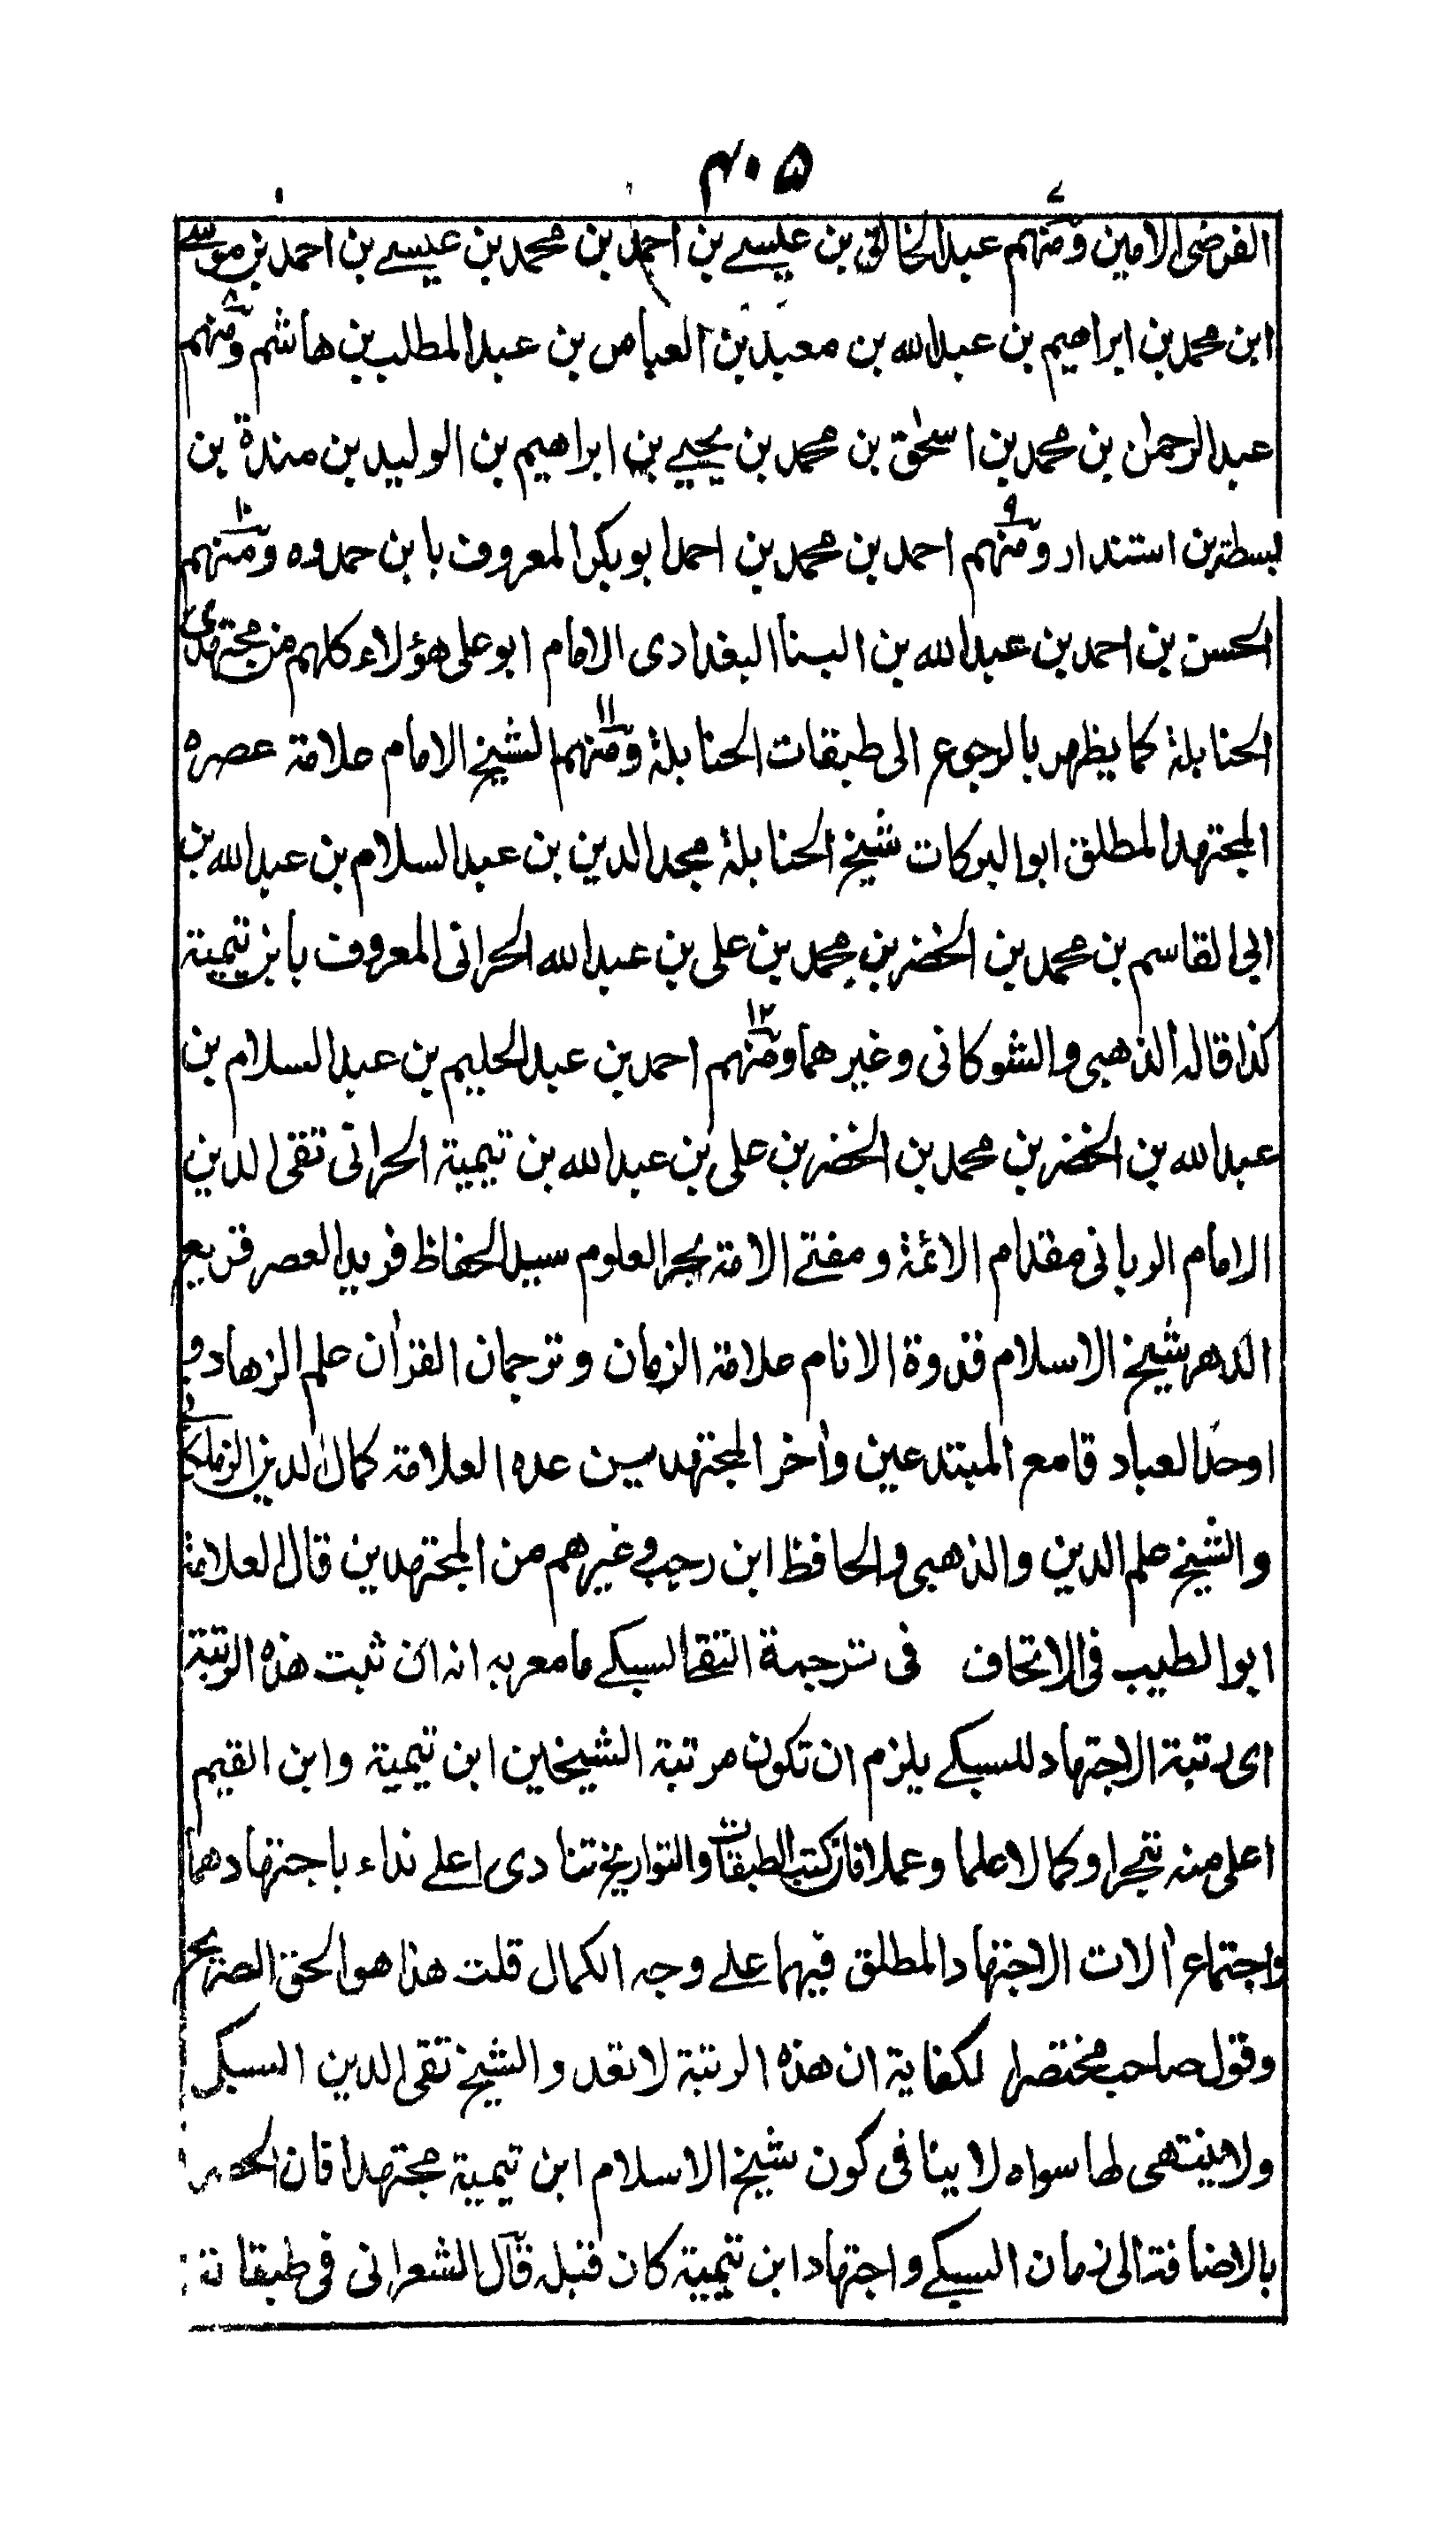 ۴۰۵
الفرضى الامين ومنهم عبد الخالق بن عيسے بن احمد بن محمد بن عيسے بن احمد بن موسے
ابن محمد بن ابراهيم بن عبد الله بن معبد بن العباس بن عبد المطلب بن هاشم ومنهم
عبد الرحمٰن بن محمد بن اسحٰق بن محمد بن يحيے بن ابراهيم بن الوليد بن مندة بن
بسطة بن استندار ومنهم احمد بن محمد بن احمد ابو بكر المعروف با بن حمدوه ومنهم
الحسن بن احمد بن عبد الله بن البنا البغدادى الامام ابو على هؤلاء كلهم من مجتهدى
الحنابلة كما يظهر بالرجوع الى طبقات الحنابلة ومنهم الشيخ الامام علامة عصره
المجتهد المطلق ابو البركات شيخ الحنابلة مجد الدين بن عبد السلام بن عبد الله بن
ابى القاسم بن محمد بن الخضر بن محمد بن على بن عبد الله الحرانى المعروف بابن تيمية
كذا قاله الذهبى والشوكانى وغيرهما ومنهم احمد بن عبد الحليم بن عبد السلام بن
عبد الله بن الخضر بن محمد بن الخضر بن على بن عبد الله بن تيمية الحرانى تقى الدين
الامام الربانى مقدام الائمة ومفتے الامة بحر العلوم سيد الحفاظ فريد العصر قريع
الدهر شيخ الاسلام قدوة الانام علامة الزمان وترجمان القرأن علم الزهاد و
اوحد العباد قامع المبتدعين وأخر المجتهدين عده العلامة كمال الدين الزملكانے
والشيخ علم الدين والذهبى والحافظ ابن رجب وغيرهم من المجتهدين قال العلامة
ابو الطيب فى الاتحاف فى ترجمة التقے السبكے ما معربه انه ان ثبت هذه الرتبة
اى رتبة الاجتهاد للسبكے يلزم ان تكون مرتبة الشيخين ابن تيمية وابن القيم
اعلى منه تبحرا وكمالا علما وعملا فان كتب الطبقات والتواريخ تنادى اعلے نداء باجتهادهما
واجتماع ألات الاجتهاد المطلق فيهما علے وجه الكمال قلت هذا هو الحق الصريح
وقول صاحب مختصر الكفاية ان هذه الرتبة لا تعد والشيخ تقى الدين السبكى
ولا ينتهى لها سواه لا ينافى كون شيخ الاسلام ابن تيمية مجتهدا فان الحصر
بالاضافة الى زمان السبكے واجتهاد ابن تيمية كان قبله قال الشعرانى فى طبقاته